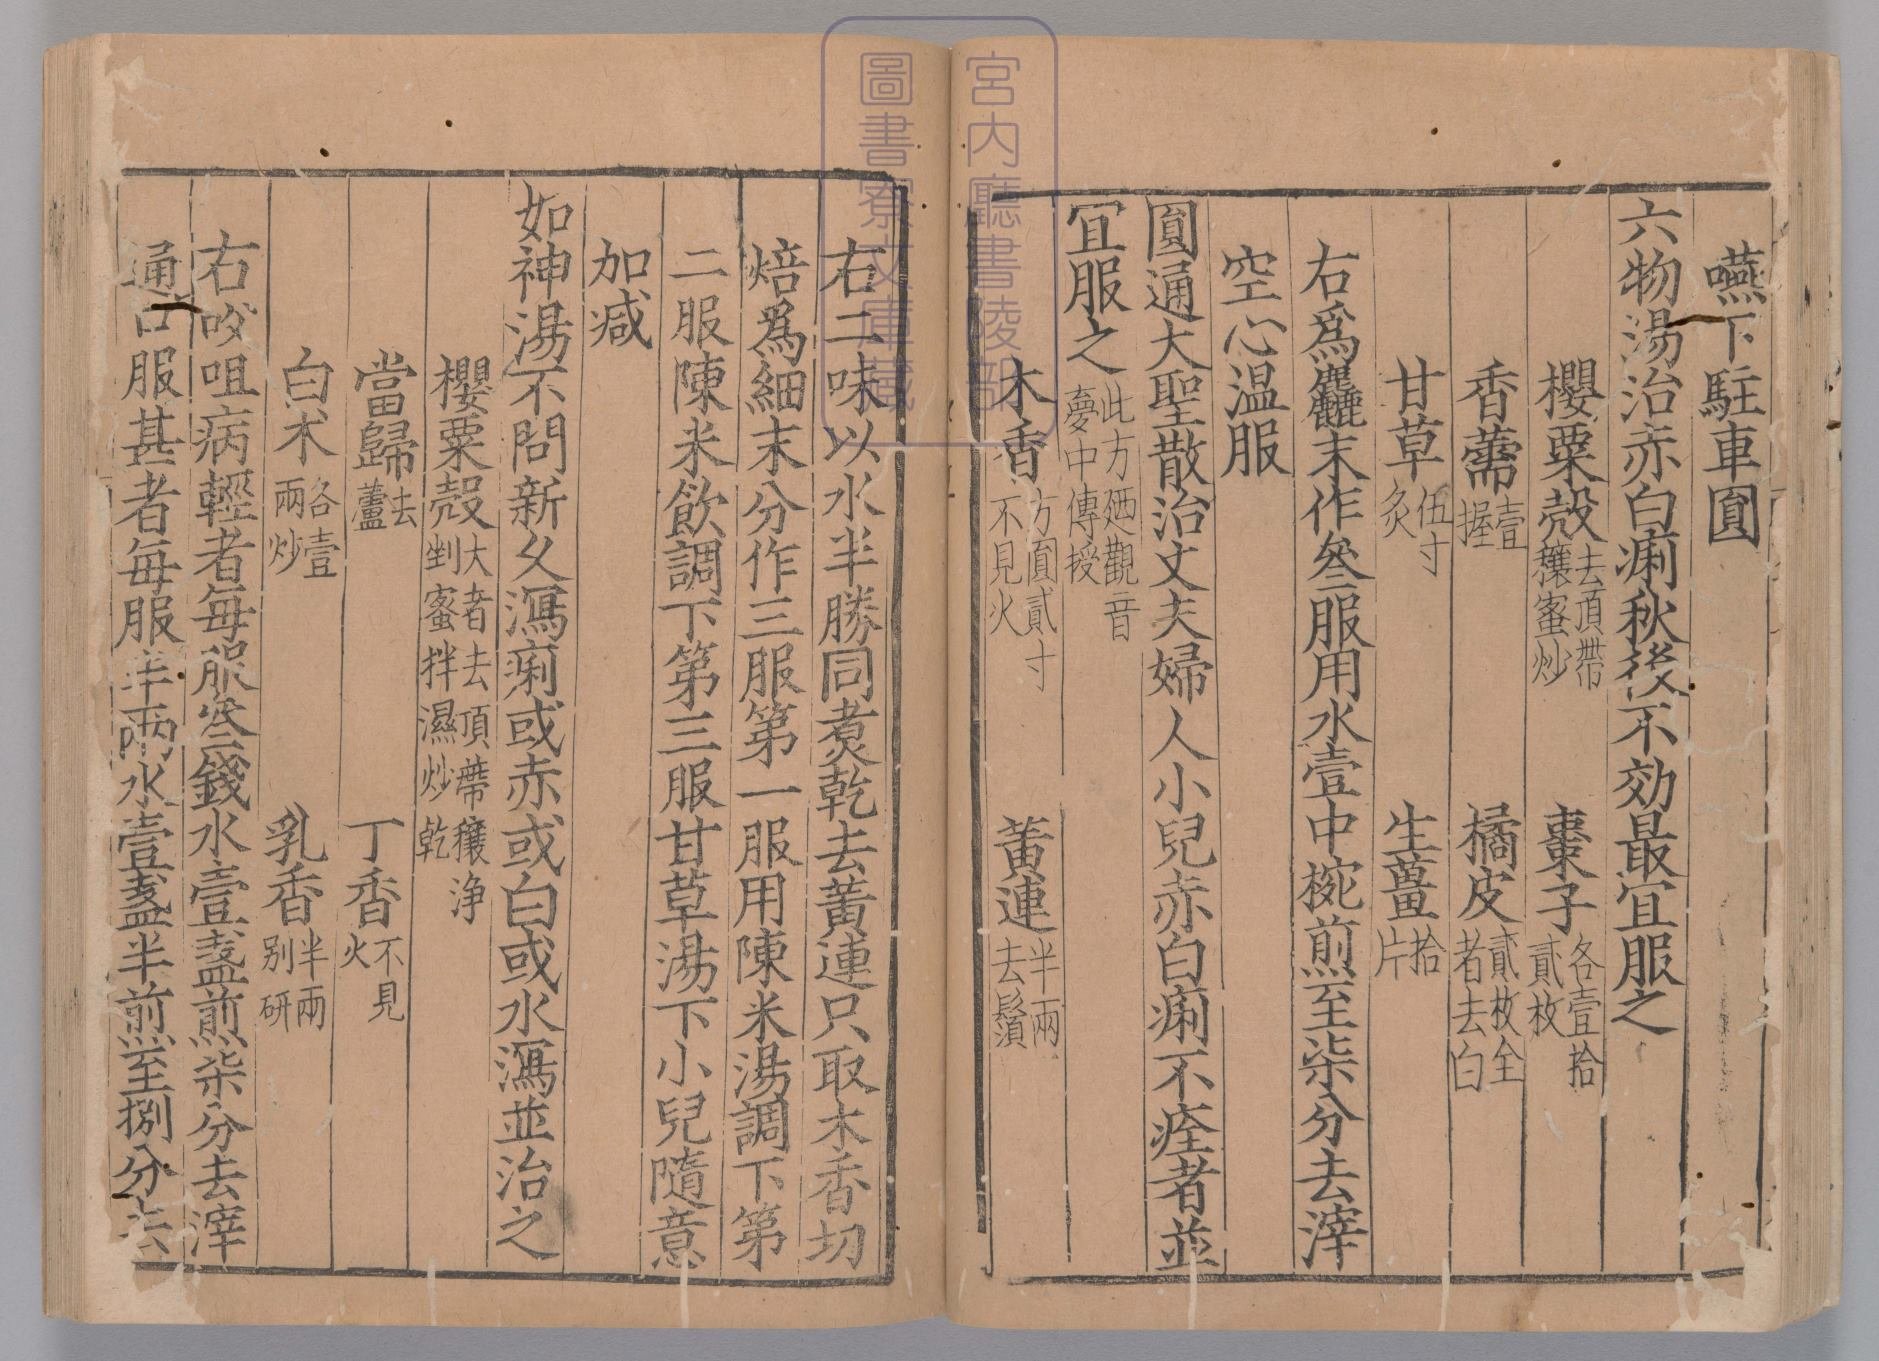 嚥下駐車圓
六物湯治赤白痢秋後不効最宜服之
櫻粟殻去頂帶穰蜜炒　棗子各壹拾貳枚
香薷壹握　橘皮貳枚全者去白
甘草伍寸炙　生薑拾片
右爲麤末作叄服用水壹中椀煎至柒分去滓
空心温服
圓通大聖散治丈夫婦人小兒赤白痢不痊者並
宜服之此方廼觀音夢中傳授
木香方圓貳寸不見火　黃連半兩去鬚
右二味以水半勝同煑乾去黃連只取木香切
焙爲細末分作三服第一服用陳米湯調下第
二服陳米飲調下第三服甘草湯下小兒隨意
加减
如神湯不問新久瀉痢或赤或白或水瀉並治之
櫻粟殻大者去頂蔕穰浄剉蜜拌濕炒乾
當歸去蘆　丁香不見火
白朮各壹兩炒　乳香半兩别研
右㕮咀病輕者每服叄錢水壹盞煎柒分去滓
通口服甚者每服半兩水壹盞半煎至捌分去
宮内廳書陵部
圖書寮文庫藏